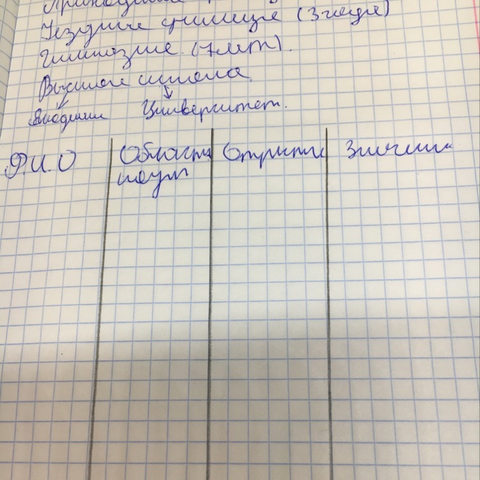 Приходские
Уездные училище (3 года)
Гимназие (7 лет).
Высшая школа
Академии Университет.
Ф.И.О Область наук Открытие Значение